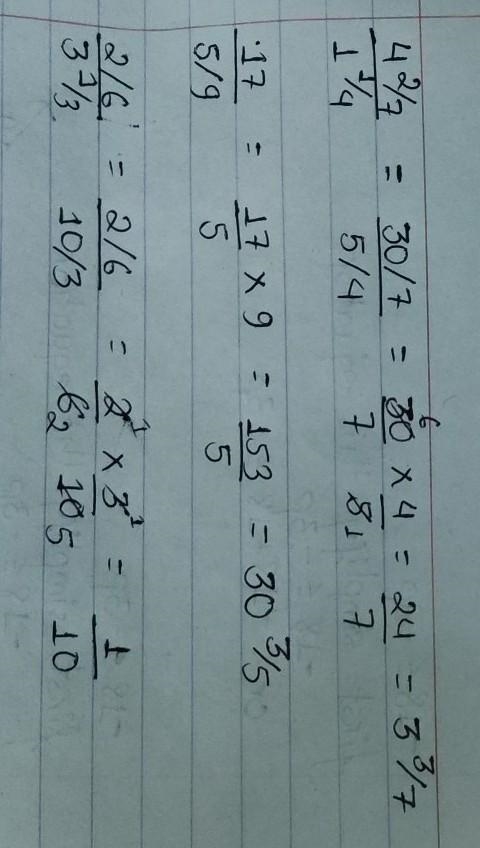 4 2/7 / 1 1/4 = 30/7 / 5/4 = 30 6 / 7 × 4 / 5 1 = 24 / 7 = 3 3/7
17 / 5/9 = 17 / 5 × 9 = 153 / 5 = 30 3/5
2/6 / 3 1/3 = 2/6 / 10/3 = 2 1 / 6 2 × 3 1 / 10 5 = 1 / 10